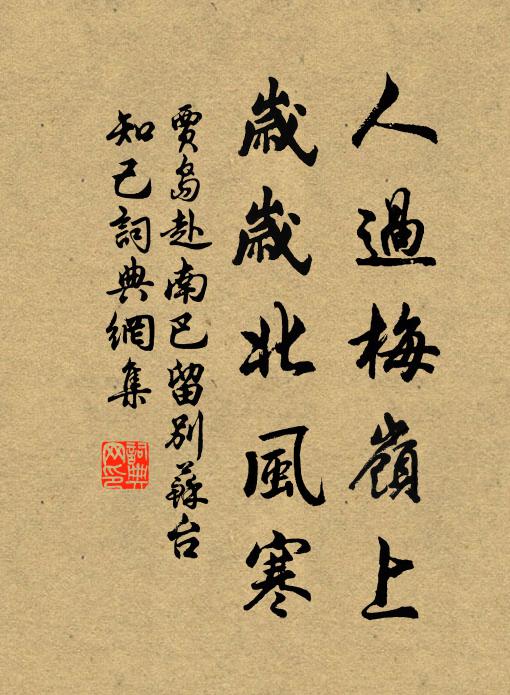 人過梅嶺上
歲歲北風寒
賈島赴南巴留別蘇台
知己詞典網集
詞典網印